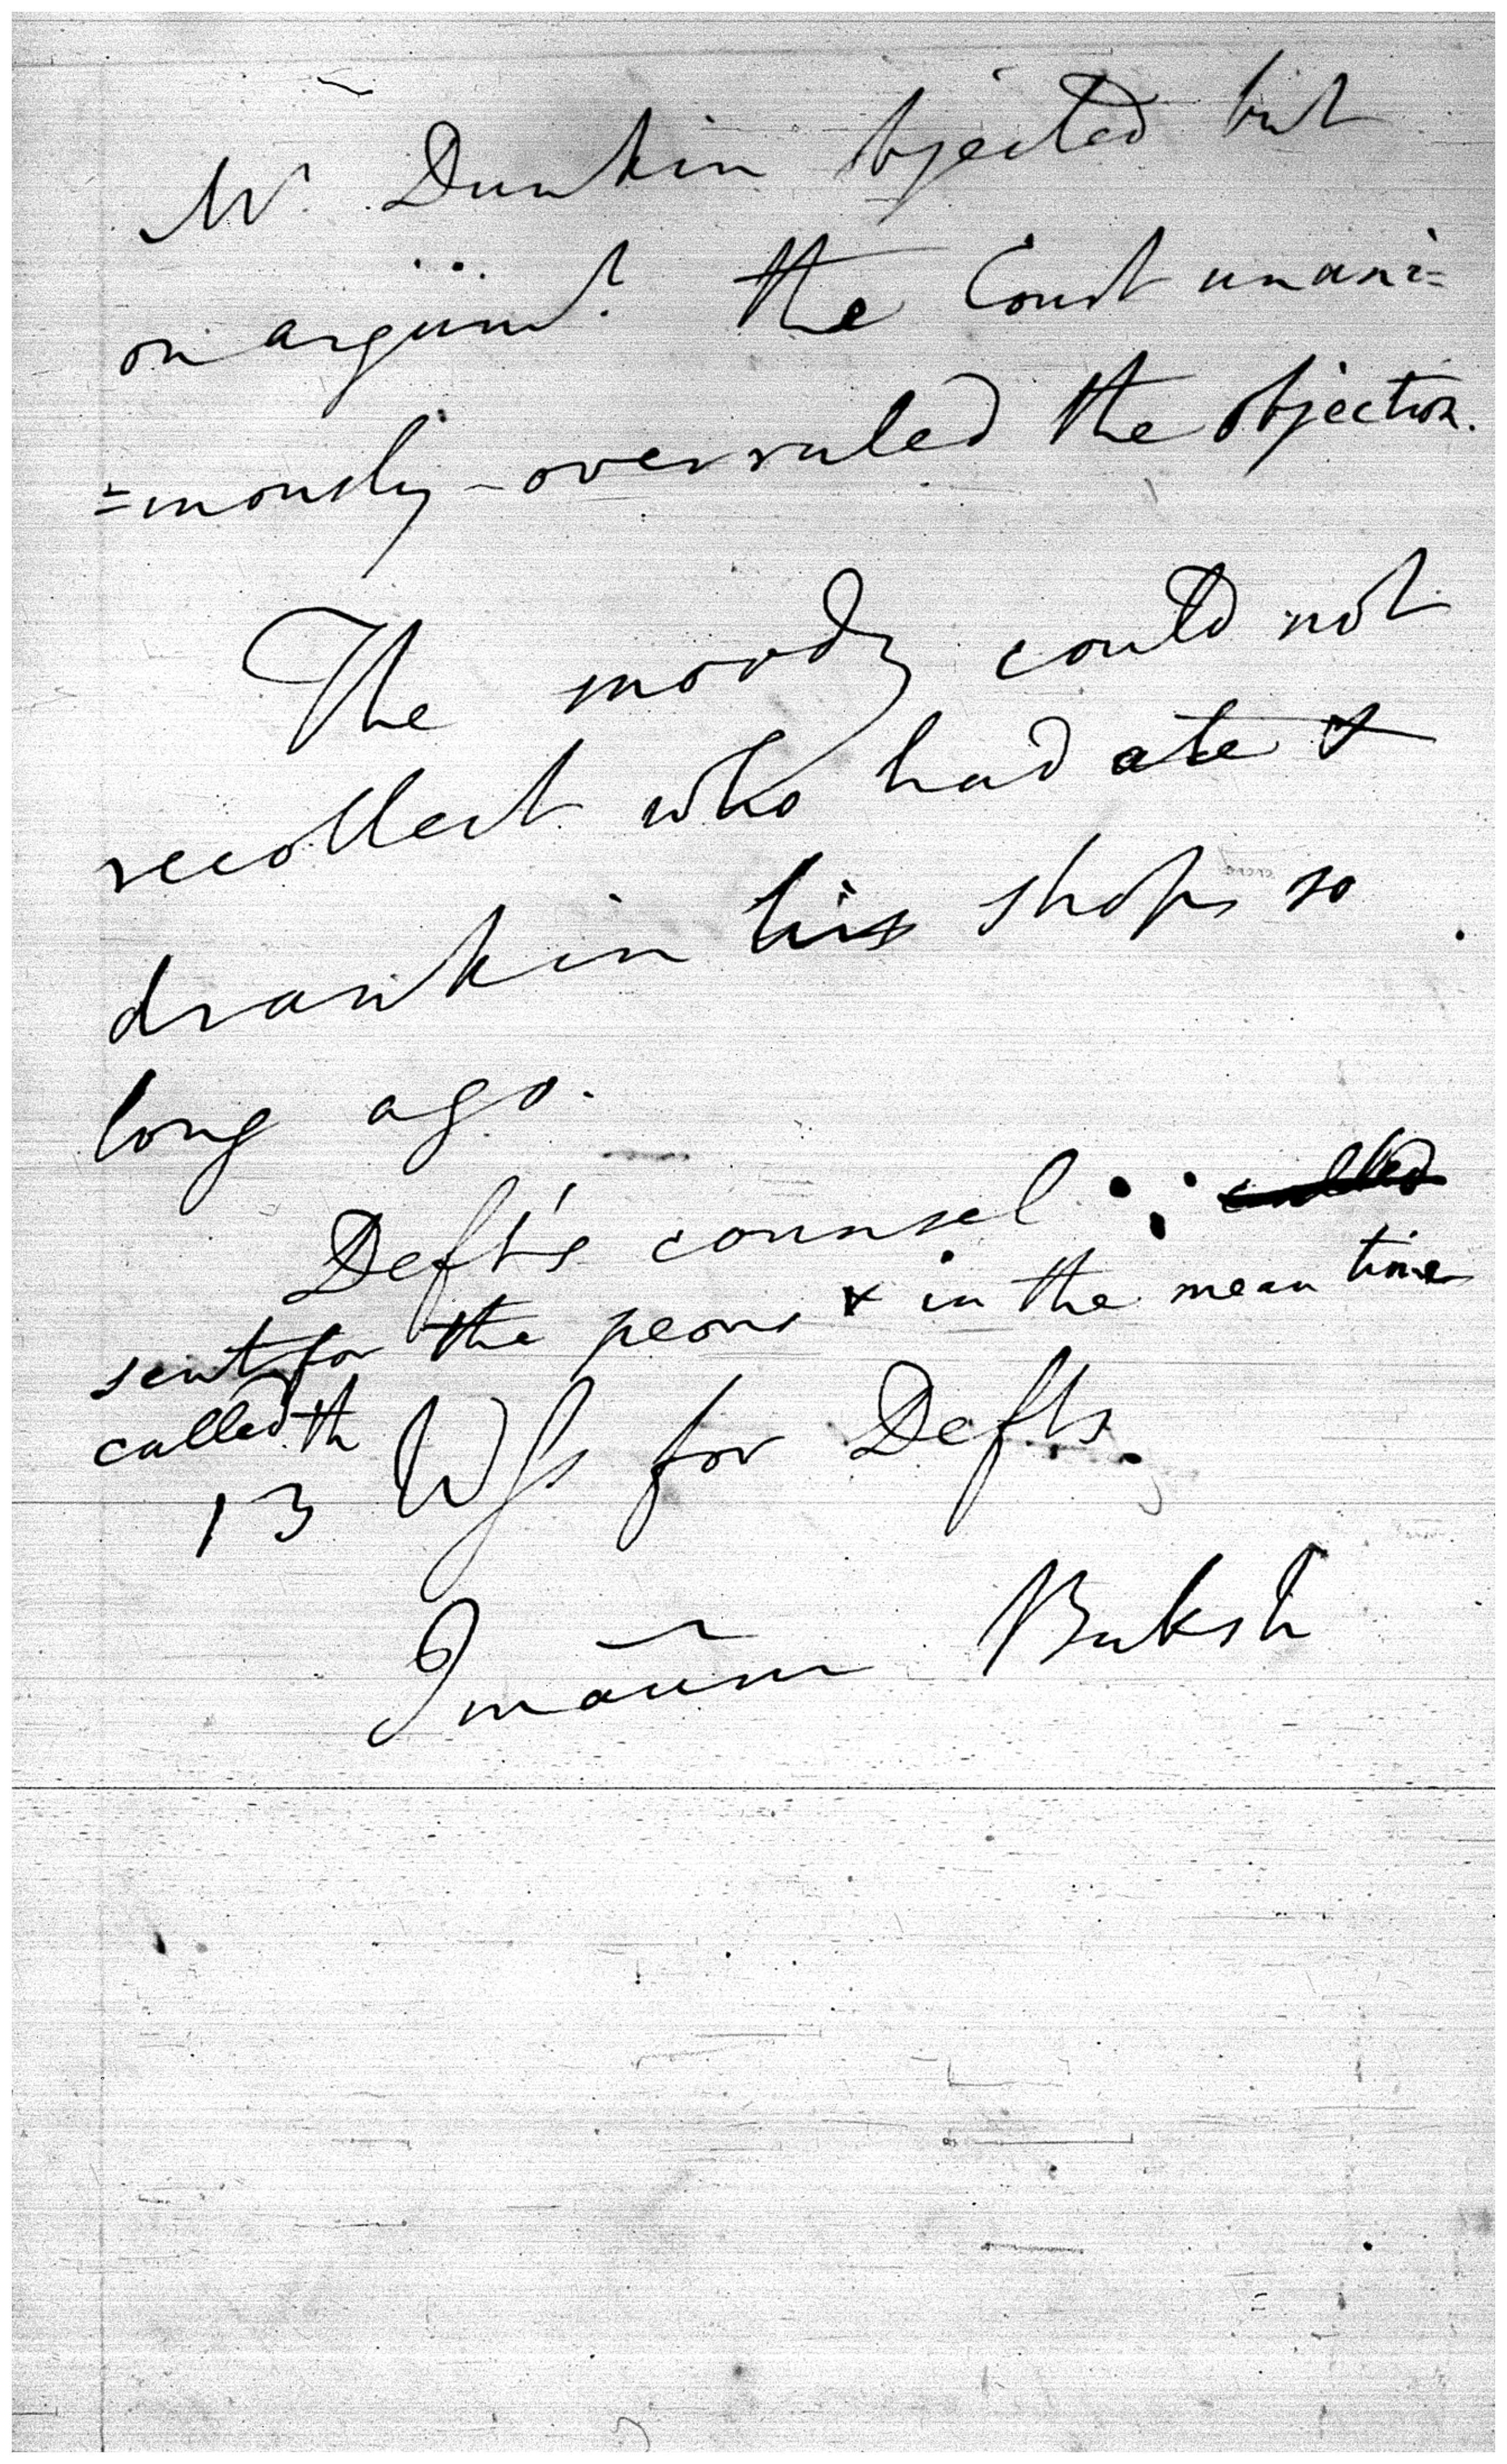 Mr. Dunkin objected but
on argumt. the Court unani=
=mously overruled the objection.
The moody could not
recollect who had ate &
drank in his shop so
long ago.
Deft's counsel called
sent for the peons & in the mean time
called th
13 Ws for Defts.
Imāūm Buksh